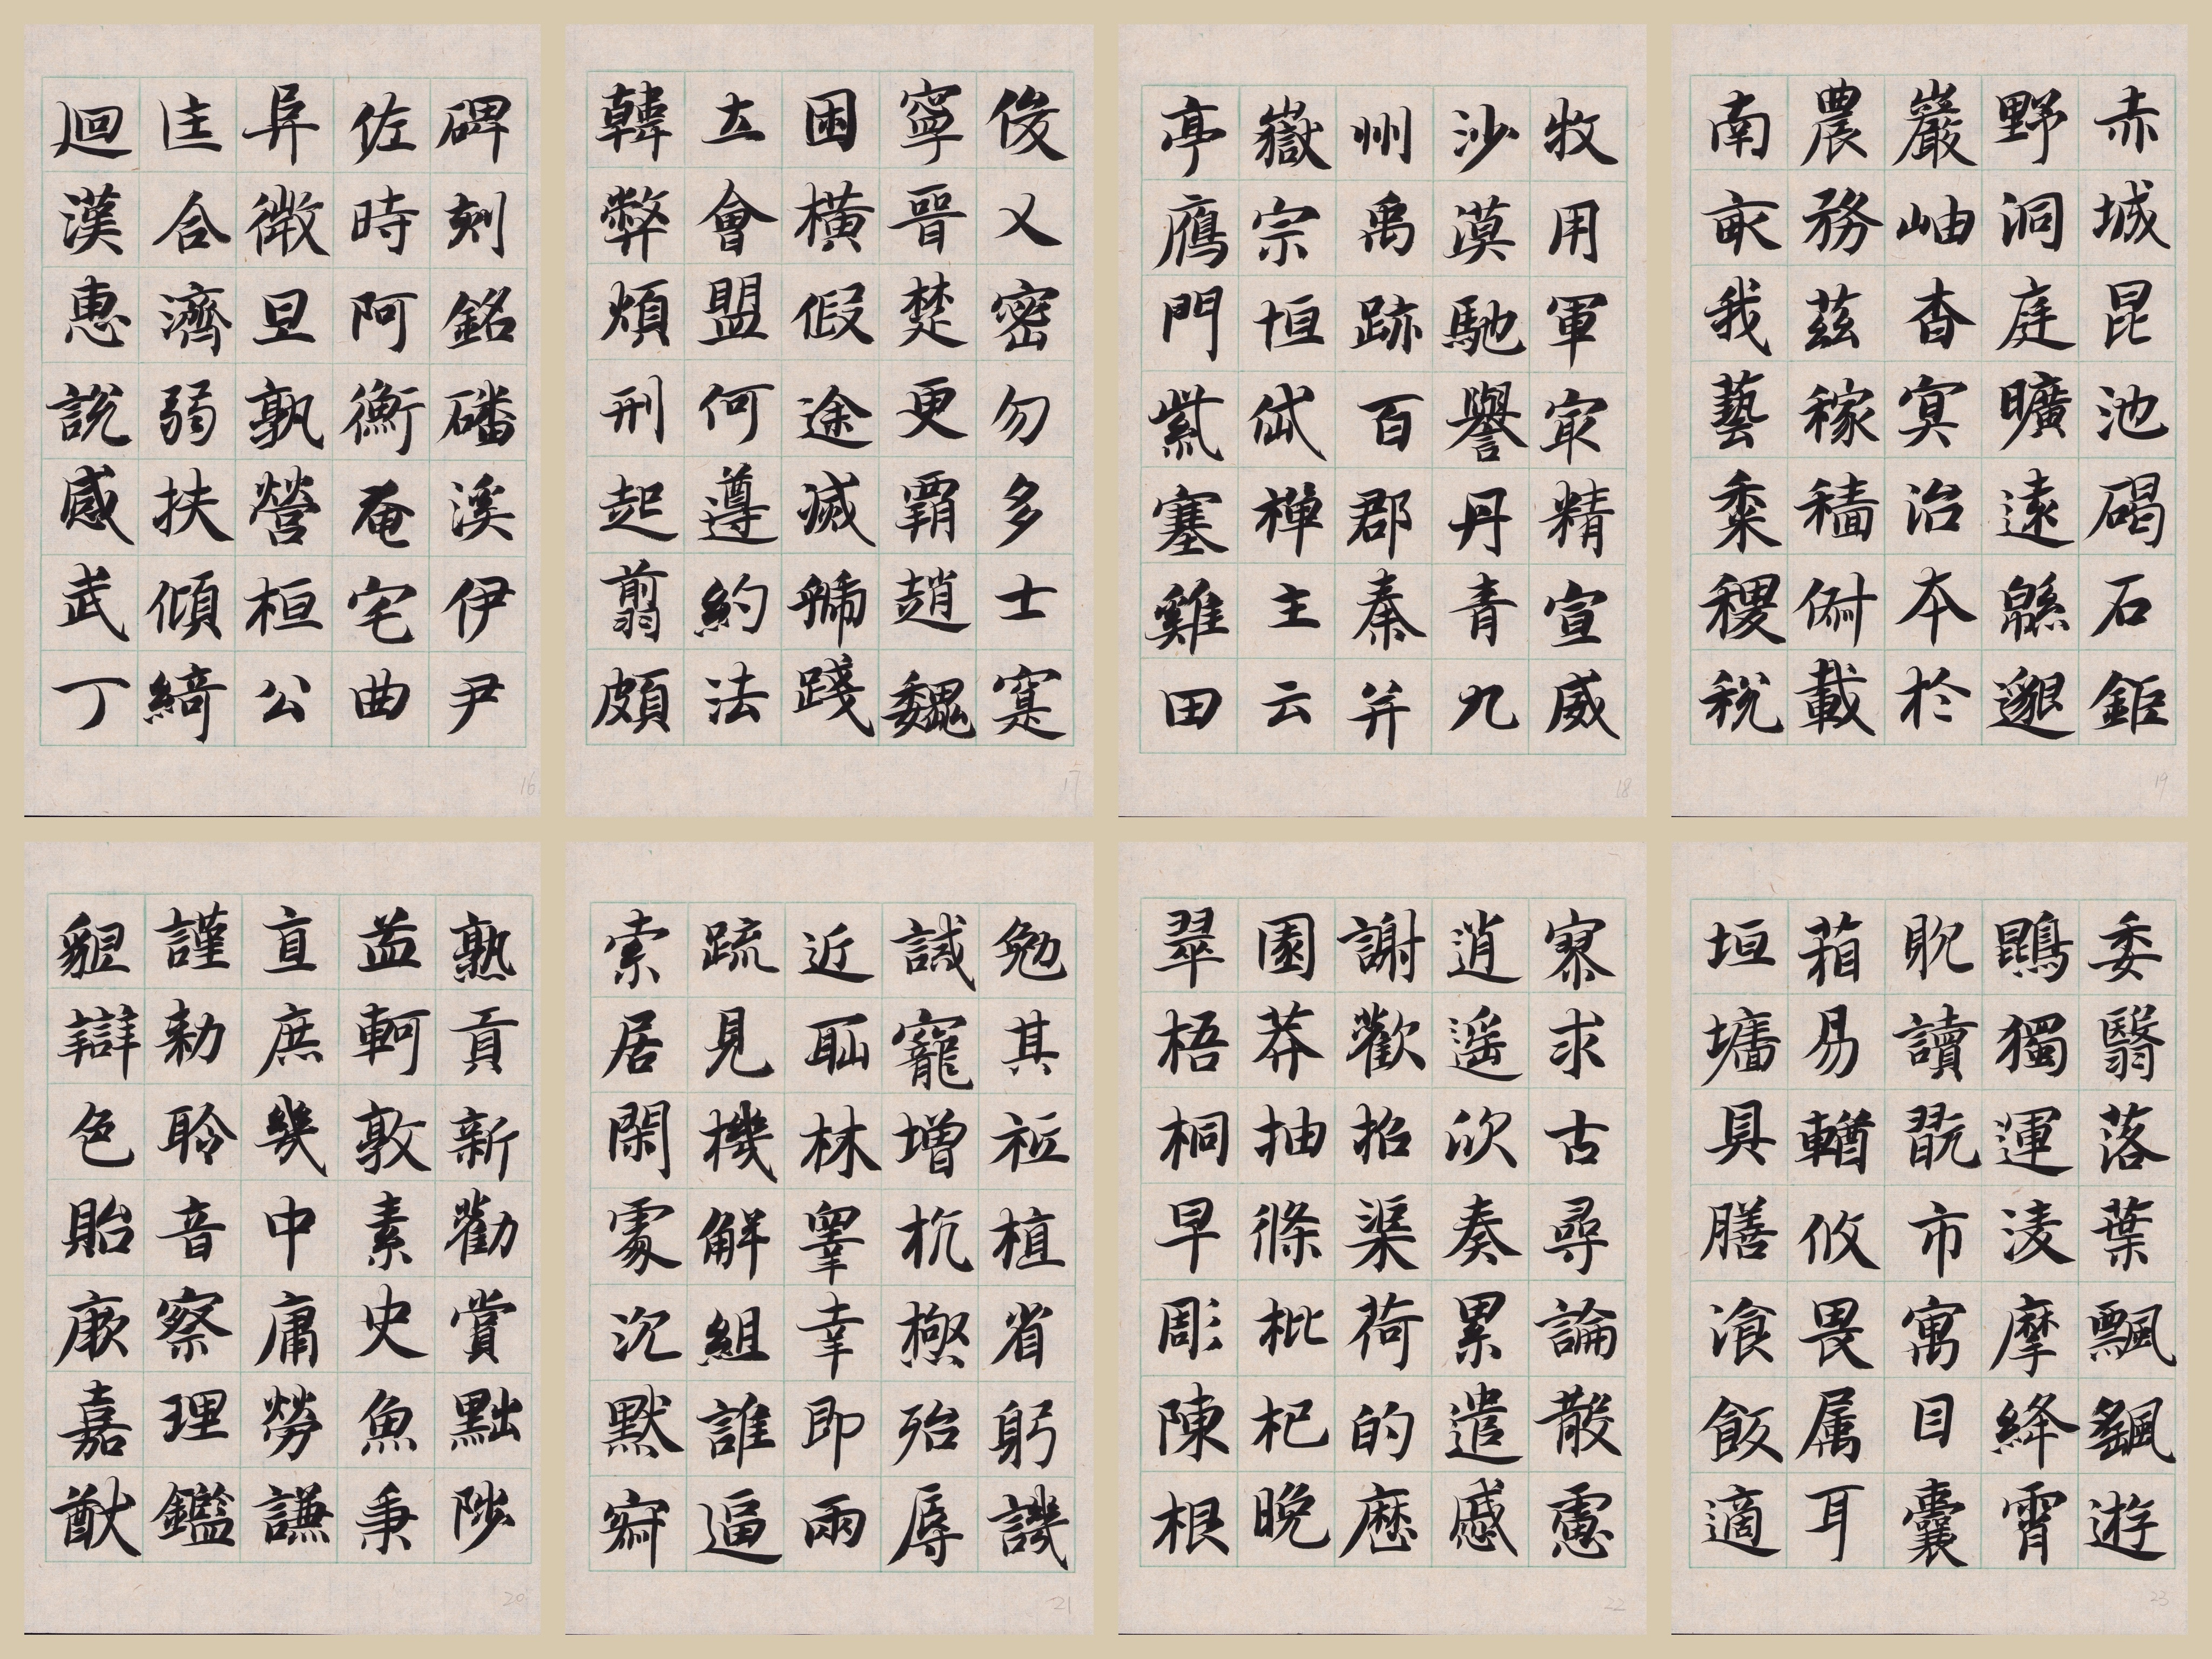 碑刻銘磻溪伊尹
佐時阿衡奄宅曲
阜微旦孰營桓公
匡合濟弱扶傾綺
迴漢惠說感武丁
16
俊乂密勿多士寔
寧晉楚更霸趙魏
困橫假途滅虢踐
土會盟何遵約法
韓弊煩刑起翦頗
17
牧用軍最精宣威
沙漠馳譽丹青九
州禹跡百郡秦并
嶽宗恒岱禪主云
亭鴈門紫塞雞田
18
赤城昆池碣石鉅
野洞庭曠遠緜邈
巖岫杳冥治本於
農務茲稼穡俶載
南畝我藝黍稷稅
19
熟貢新勸賞黜陟
孟軻敦素史魚秉
直庶幾中庸勞謙
謹勑聆音察理鑑
貌辯色貽厥嘉猷
20
勉其祗植省躬譏
誡寵增抗極殆辱
近恥林睪幸即兩
疏見機解組誰逼
索居閑處沉默寂
21
寥求古尋論散慮
逍遙欣奏累遣慼
謝歡招渠荷的歷
園莽抽條枇杷晚
翠梧桐早彫陳根
22
委翳落葉飄颻遊
鵾獨運淩摩絳霄
耽讀翫市寓目囊
箱易輶攸畏属耳
垣墻具膳飡飯適
23